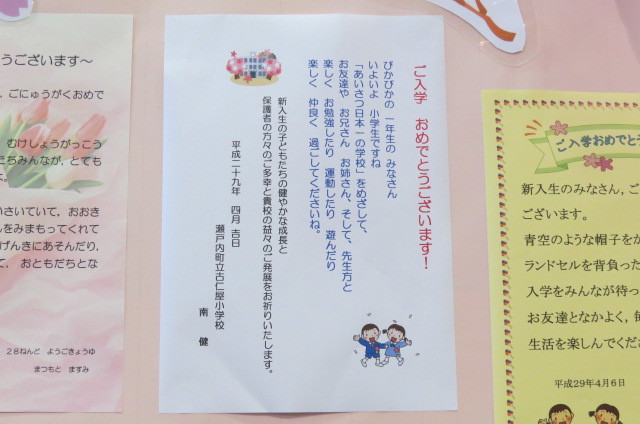 うございます～
、ごにゅうがくおめで
むけしょうがっこう
こちみんなが、とても
よ。
さいていて、おおき
んをみまもってくれて
げんきにあそんだり、
て、おともだちとな
28ねんど ようごきょうゆ
まつもと ますみ
ご入学 おめでとうございます！
ぴかぴかの 一年生の みなさん
いよいよ 小学生ですね
「あいさつ日本一の学校」をめざして、
お友達や お兄さん お姉さん、そして、先生方と
楽しく お勉強したり 運動したり 遊んだり
楽しく 仲良く 過ごしてくださいね。
新入生の子どもたちの健やかな成長と
保護者の方々のご多幸と貴校の益々のご発展をお祈りいたします。
平成二十九年 四月 吉日
瀬戸内町立古仁屋小学校
南 健
ご入学おめでとう
新入生のみなさん、ご
ございます。
青空のような帽子をか
ランドセルを背負った
入学をみんなが待っ
お友達となかよく、毎
生活を楽しんでくださ
平成29年4月6日